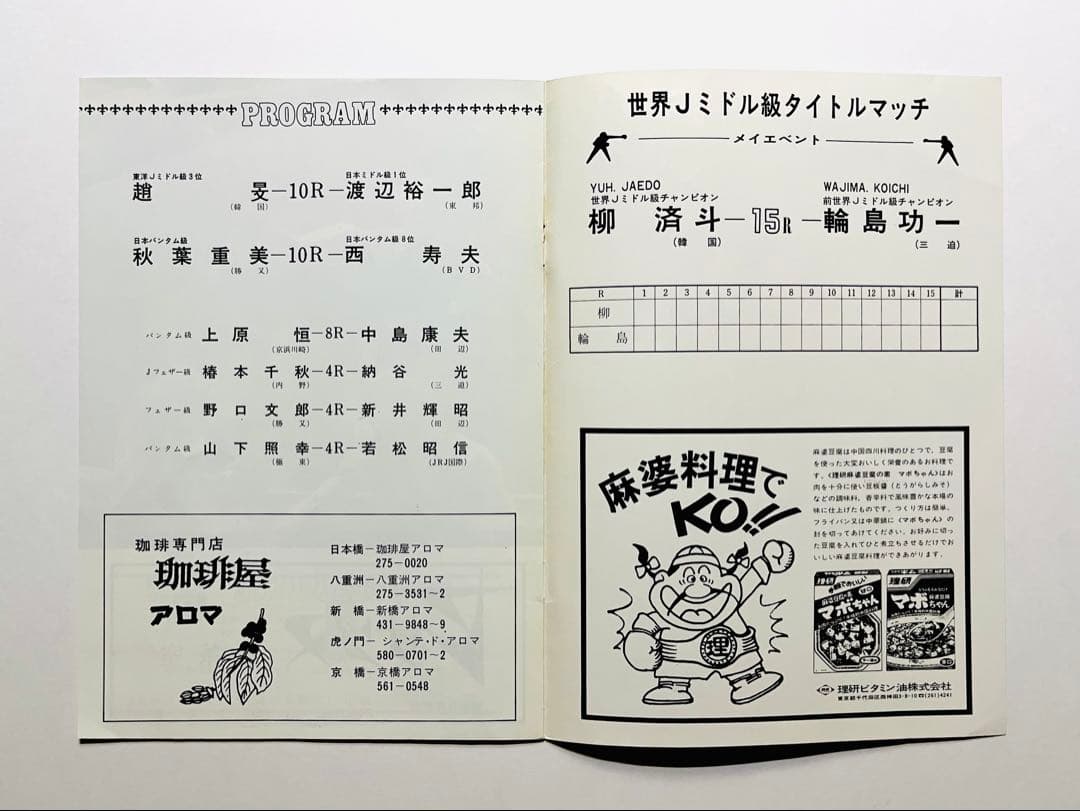 PROGRAM
東洋Jミドル級3位 日本ミドル級1位
趙 旻―10R―渡辺裕一郎
(韓国) (東邦)
日本バンタム級 日本バンタム級8位
秋葉重美―10R―西 寿夫
(勝又) (BVD)
バンタム級 上原 恒―8R―中島康夫
(京浜川崎) (田辺)
Jフェザー級 椿本千秋―4R―納谷 光
(内野) (三迫)
フェザー級 野口文郎―4R―新井輝昭
(勝又) (田辺)
バンタム級 山下照幸―4R―若松昭信
(極東) (JRJ国際)
珈琲専門店
珈琲屋
アロマ
日本橋―珈琲屋アロマ
275―0020
八重洲―八重洲アロマ
275―3531~2
新橋―新橋アロマ
431―9848~9
虎ノ門―シャンテ・ド・アロマ
580―0701~2
京橋―京橋アロマ
561―0548
世界Jミドル級タイトルマッチ
メイエベント
YUH. JAEDO WAJIMA. KOICHI
世界Jミドル級チャンピオン 前世界Jミドル級チャンピオン
柳 済斗―15R―輪島功一
(韓国) (三迫)
R 1 2 3 4 5 6 7 8 9 10 11 12 13 14 15 計
柳
輪島
麻婆料理で
KO!!
理
麻婆豆腐は中国四川料理のひとつで、豆腐
を使った大変おいしく栄養のあるお料理で
す。〈理研麻婆豆腐の素 マボちゃん〉はお
肉を十分に使い豆板醤(とうがらしみそ)
などの調味料、香辛料で風味豊かな本場の
味に仕上げたものです。つくり方は簡単。
フライパン又は中華鍋に〈マボちゃん〉の
封を切ってあけてください。お好みに切っ
た豆腐を入れてひと煮立ちさせるだけでお
いしい麻婆豆腐料理ができあがります。
理研
マボちゃん
理研
麻婆豆腐
マボちゃん
理研ビタミン油株式会社
東京都千代田区西神田3-8-10☎(261)4241